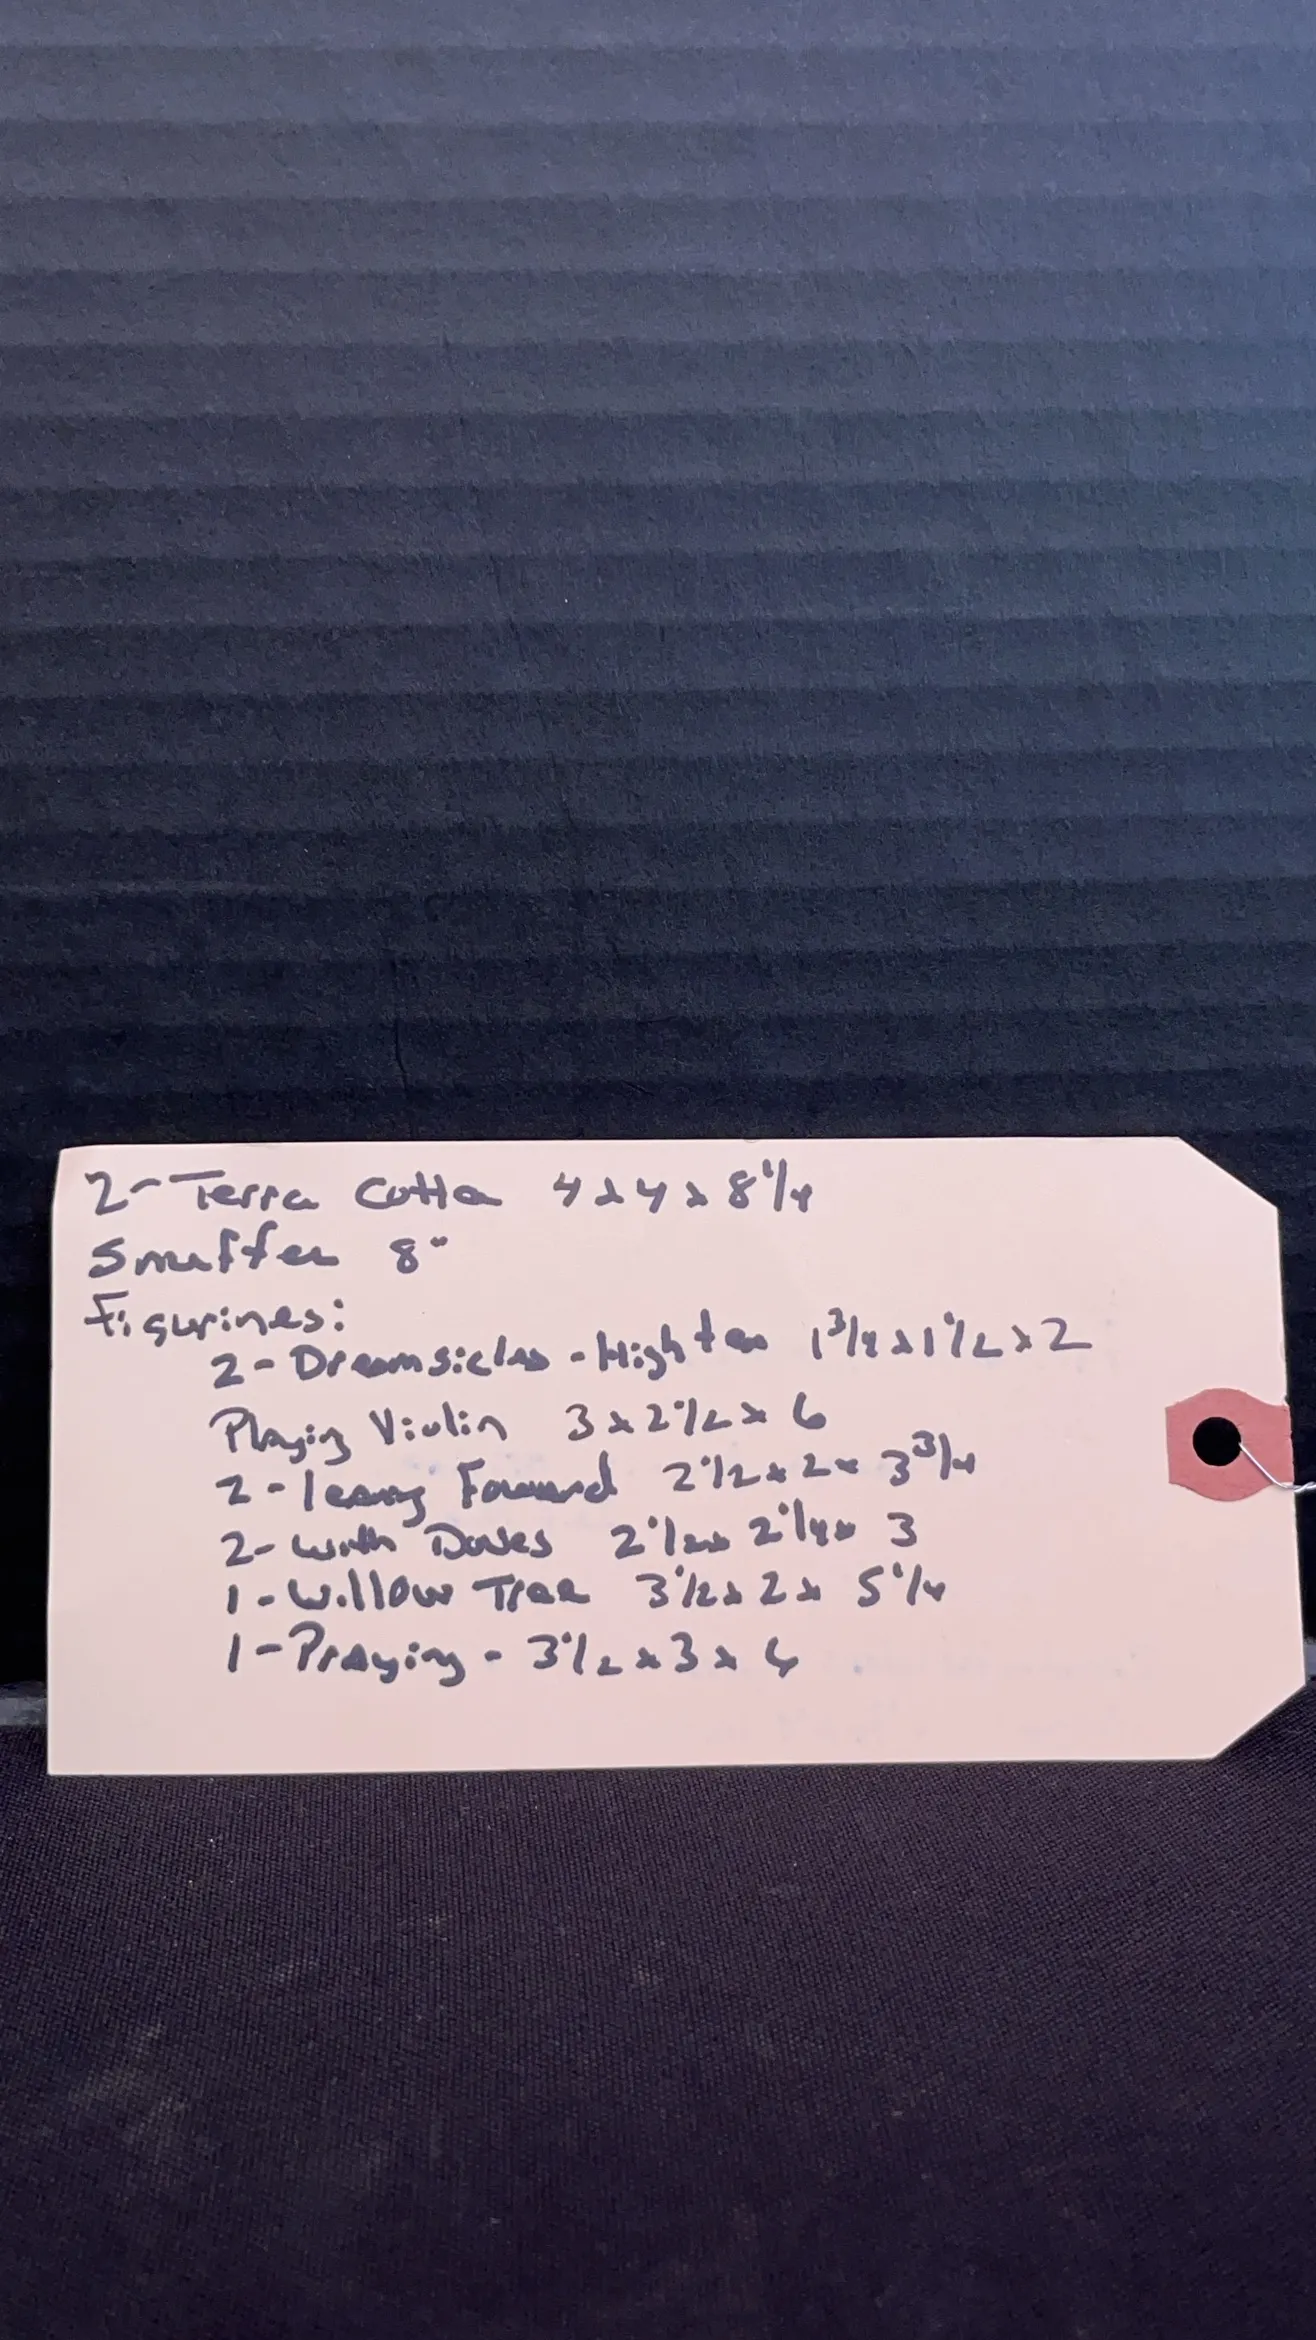 2- Terra Cotta 4 x 4 x 8 1/4
Snuffer 8"
Figurines:
2- Dreamsicles - 1 3/4 x 1 1/2 x 2
Playing Violin 3 x 2 1/2 x 6
2- leaning Forward 2 1/2 x 2 x 3 3/4
2- with Doves 2 1/2 x 2 1/4 x 3
1- Willow Tree 3 1/2 x 2 x 5 1/4
1- Praying - 3 1/2 x 3 x